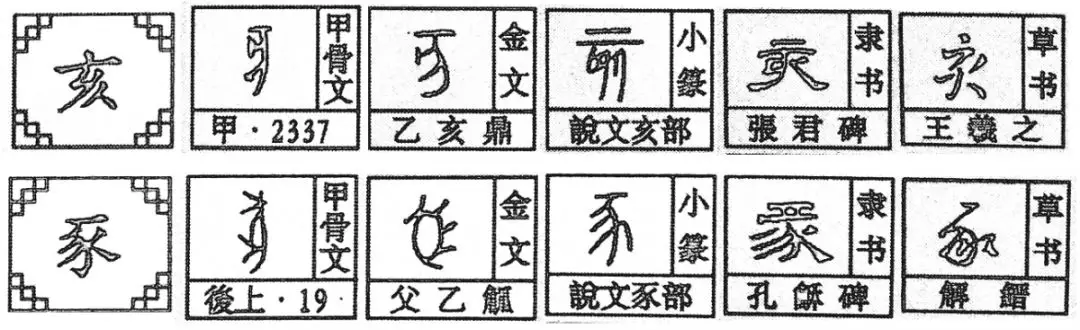 亥 甲骨文 金文 小篆 隶书 草书
甲·2337 乙亥鼎 說文亥部 張君碑 王羲之
豕 甲骨文 金文 小篆 隶书 草书
後上·19 父乙觚 說文豕部 孔龢碑 解縉